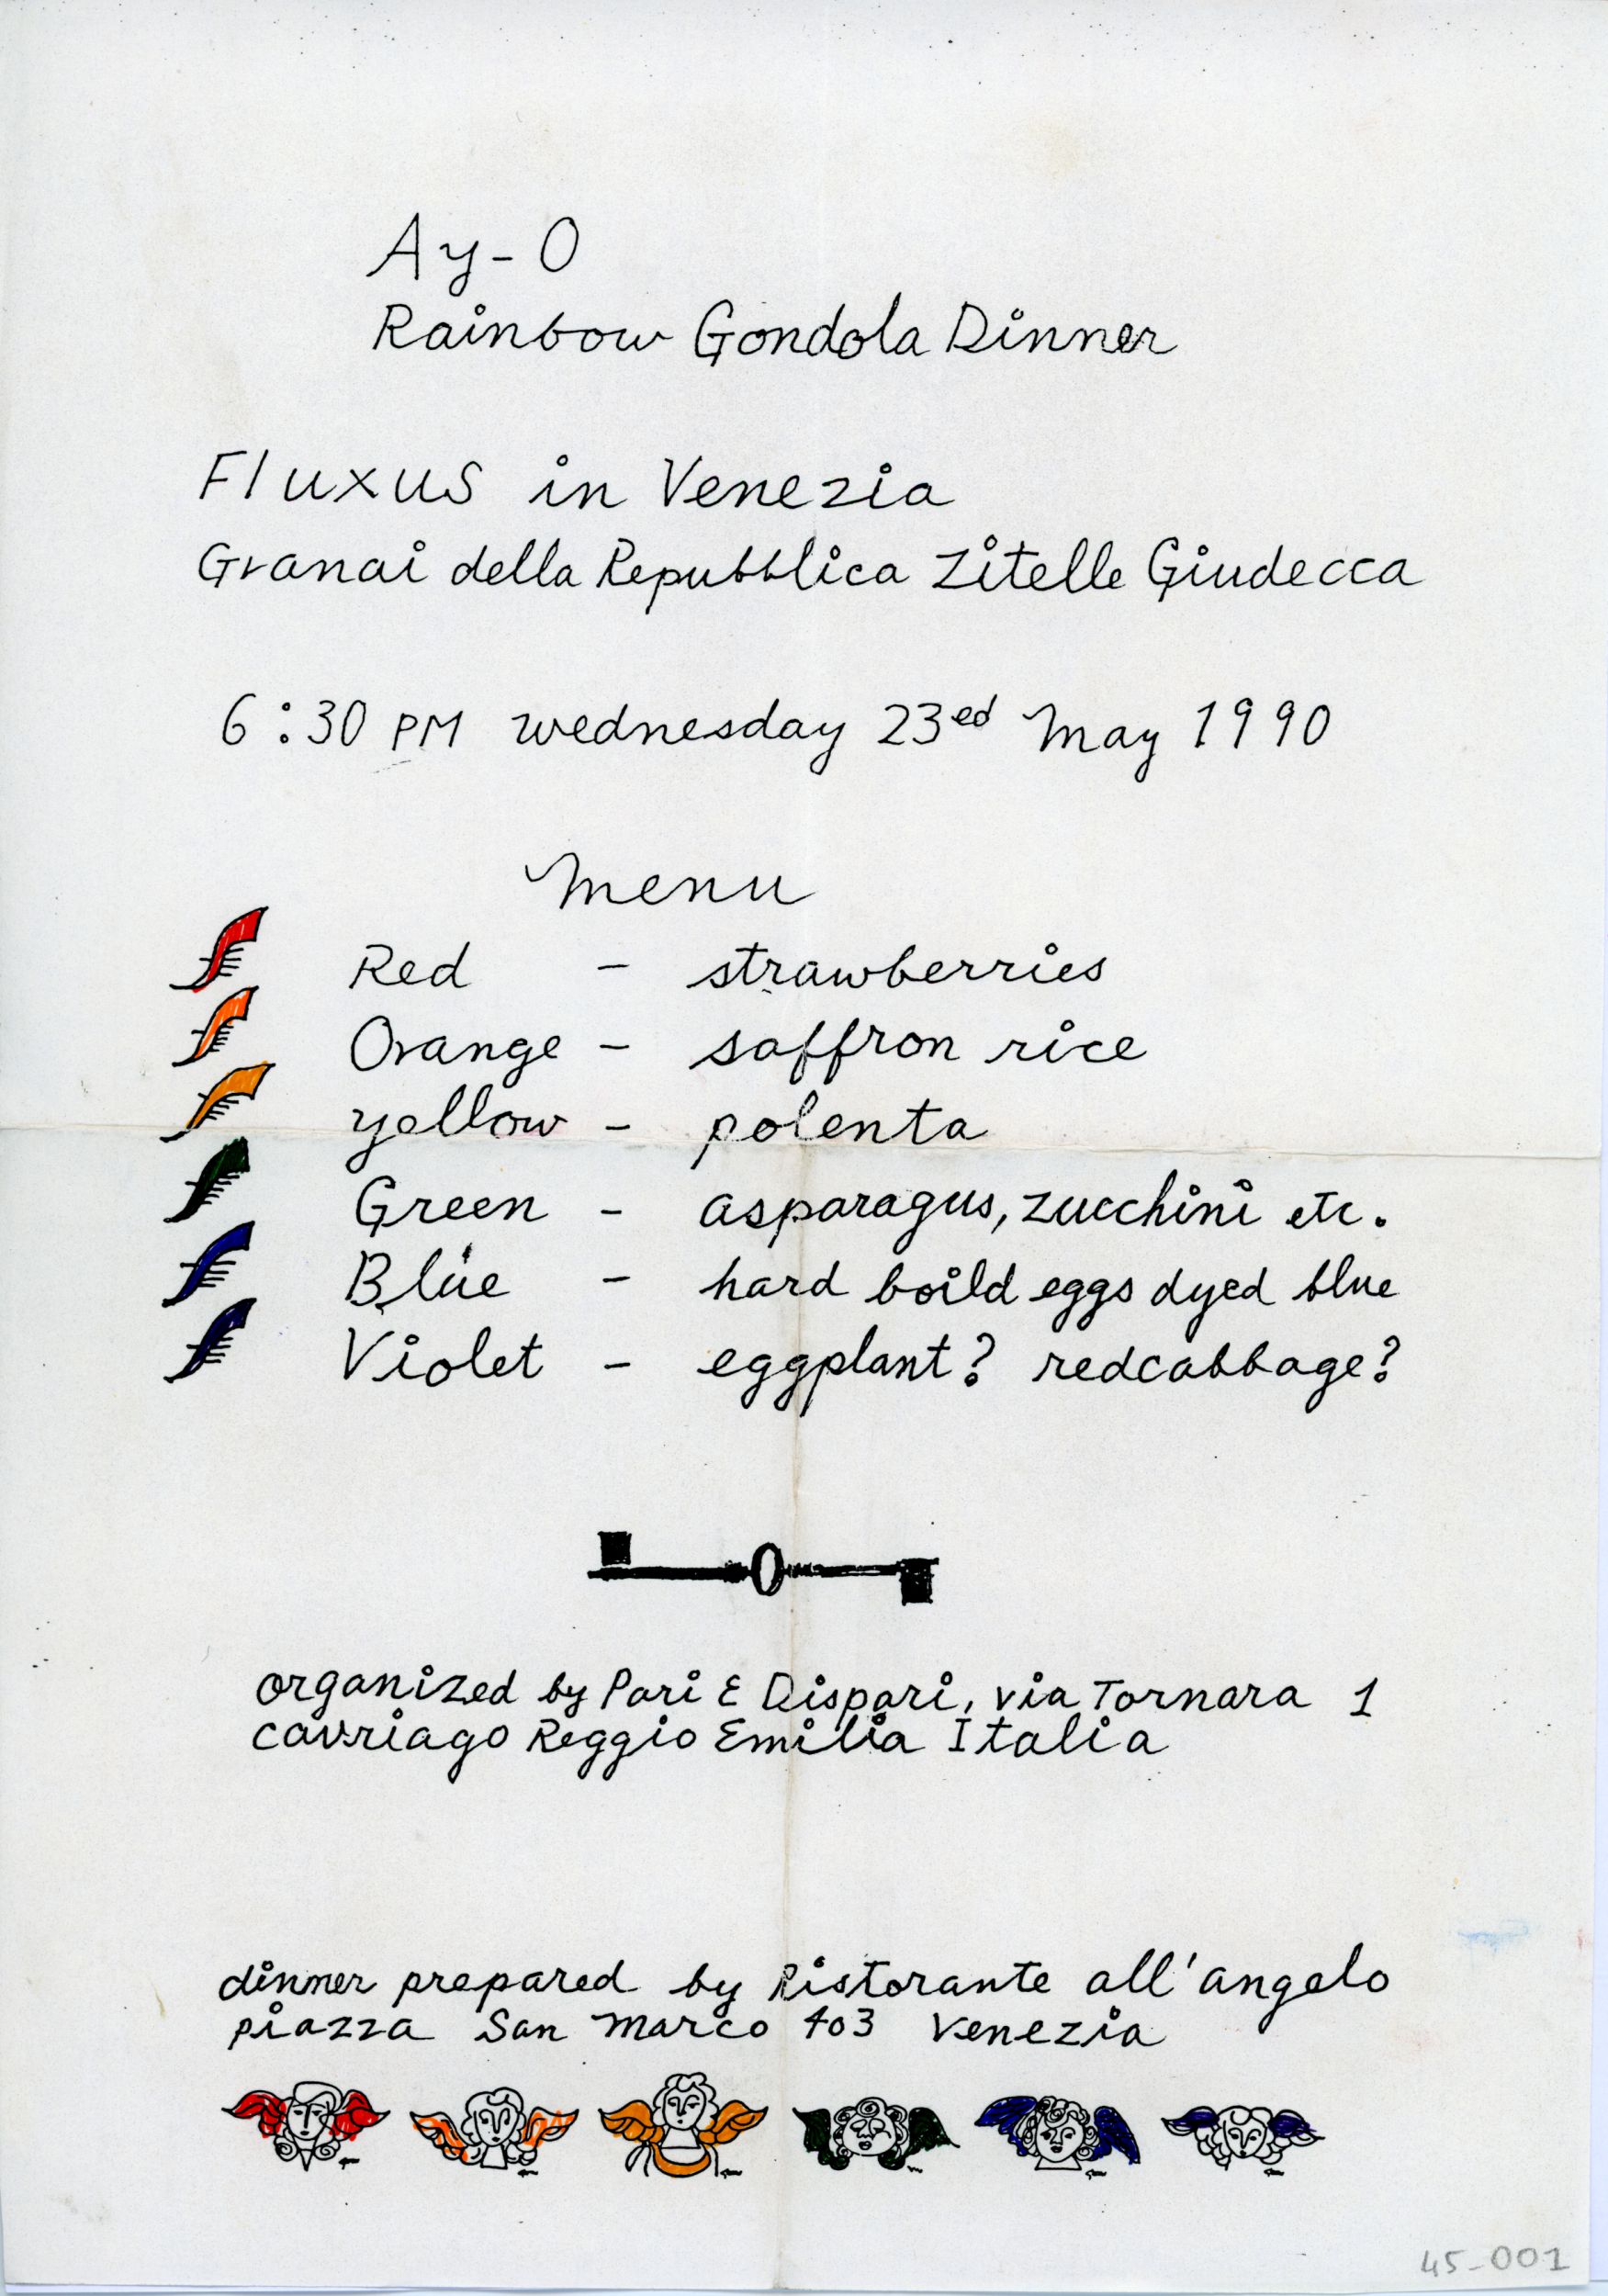 Ay-O
Rainbow Gondola Dinner
Fluxus in Venezia
Granai della Repubblica Zitelle Giudecca
6:30 PM wednesday 23ed May 1990
Menu
Red - strawberries
Orange - saffron rice
yellow - polenta
Green - asparagus, zucchini etc.
Blue - hard boild eggs dyed blue
Violet - eggplant? redcabbage?
organized by Pari E Dispari, via Tornara 1
cavriago Reggio Emilia Italia
dinner prepared by Ristorante all'angelo
piazza San Marco 403 Venezia
45-001